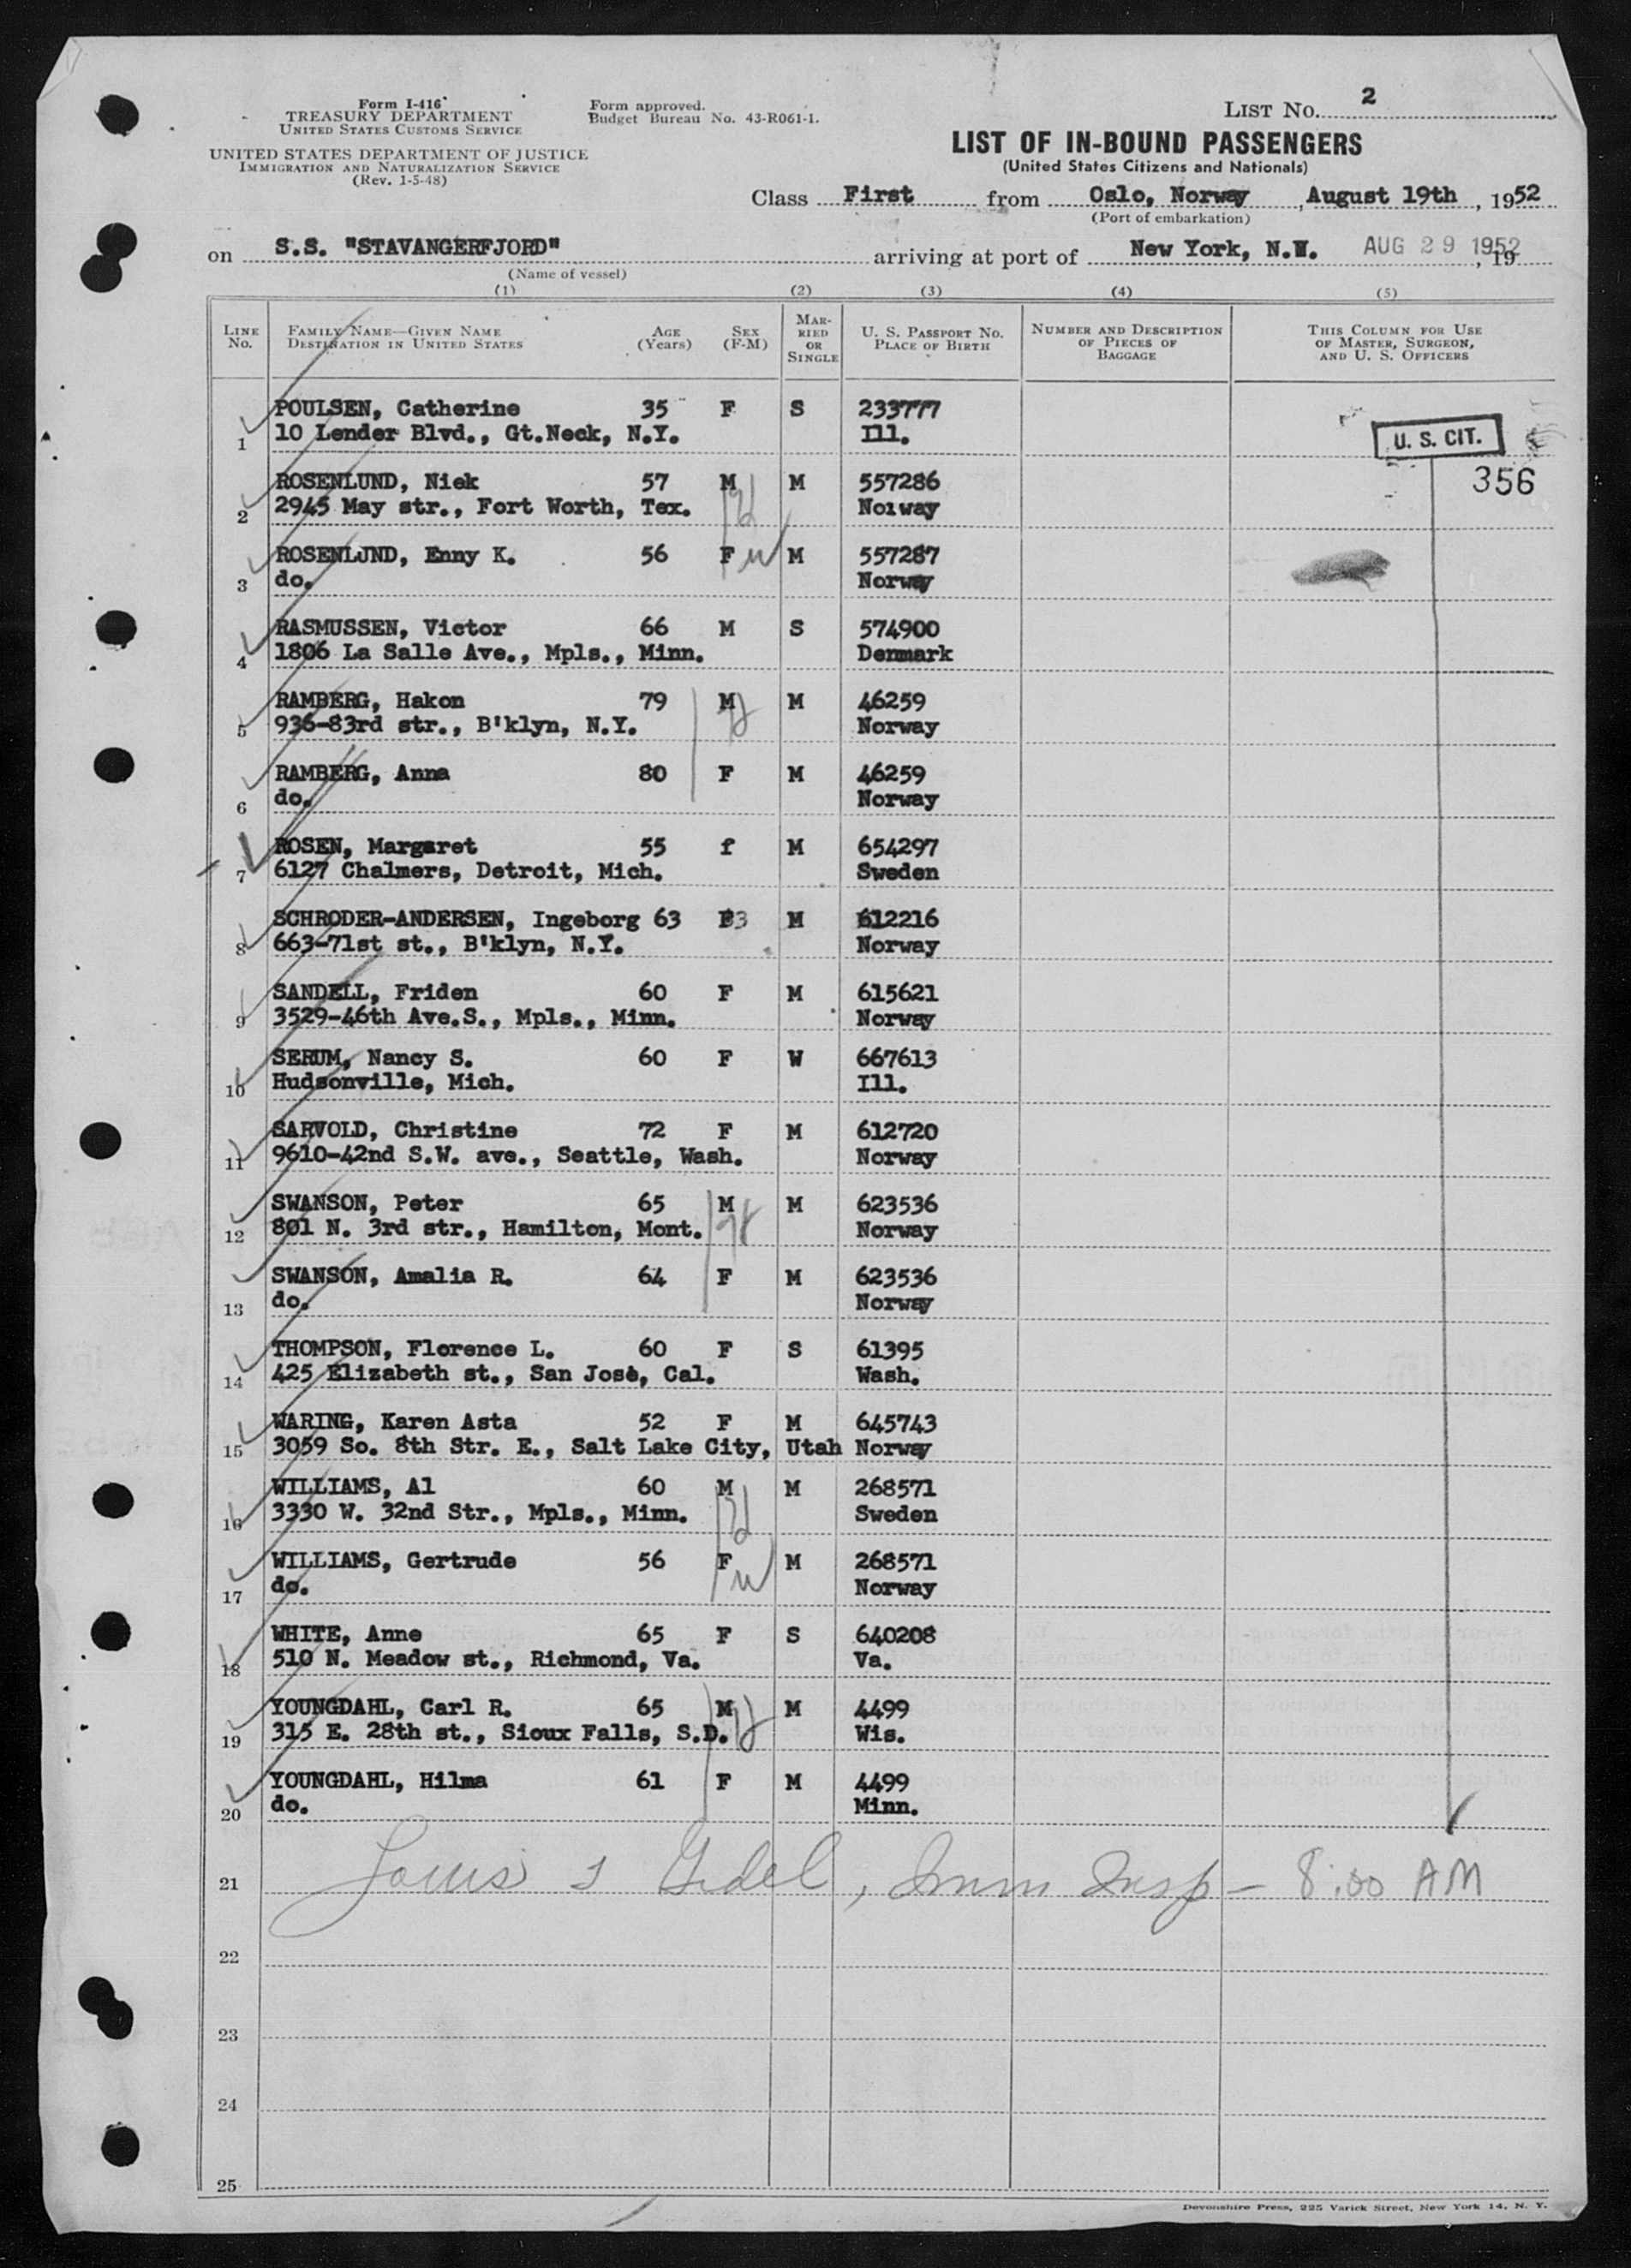 Form I-416
TREASURY DEPARTMENT
UNITED STATES CUSTOMS SERVICE
UNITED STATES DEPARTMENT OF JUSTICE
IMMIGRATION AND NATURALIZATION SERVICE
(Rev. 1-5-48)
Form approved.
Budget Bureau No. 43-R061-1.
LIST No. 2
LIST OF IN-BOUND PASSENGERS
(United States Citizens and Nationals)
Class First from Oslo, Norway, August 19th, 1952
(Port of embarkation)
on S.S. "STAVANGERFJORD" arriving at port of New York, N.Y. AUG 29 1952, 19
(Name of vessel)
(1) (2) (3) (4) (5)
LINE No. FAMILY NAME—GIVEN NAME DESTINATION IN UNITED STATES AGE (Years) SEX (F-M) MARRIED OR SINGLE U. S. PASSPORT No. PLACE OF BIRTH NUMBER AND DESCRIPTION OF PIECES OF BAGGAGE THIS COLUMN FOR USE OF MASTER, SURGEON, AND U. S. OFFICERS
POULSEN, Catherine 35 F S 233777
1 10 Lender Blvd., Gt.Neck, N.Y. Ill. U. S. CIT.
ROSENLUND, Nick 57 M M 557286 356
2 2945 May str., Fort Worth, Tex. Norway
ROSENLUND, Enny K. 56 F W M 557287
3 do. Norway
RASMUSSEN, Victor 66 M S 574900
4 1806 La Salle Ave., Mpls., Minn. Denmark
RAMBERG, Hakon 79 M M 46259
5 936-83rd str., B'klyn, N.Y. Norway
RAMBERG, Anna 80 F M 46259
6 do. Norway
ROSEN, Margaret 55 f M 654297
7 6127 Chalmers, Detroit, Mich. Sweden
SCHRODER-ANDERSEN, Ingeborg 63 M 612216
8 663-71st st., B'klyn, N.Y. Norway
SANDELL, Friden 60 F M 615621
9 3529-46th Ave.S., Mpls., Minn. Norway
SERUM, Nancy S. 60 F W 667613
10 Hudsonville, Mich. Ill.
SARVOLD, Christine 72 F M 612720
11 9610-42nd S.W. ave., Seattle, Wash. Norway
SWANSON, Peter 65 M M 623536
12 801 N. 3rd str., Hamilton, Mont. Norway
SWANSON, Amalia R. 64 F M 623536
13 do. Norway
THOMPSON, Florence L. 60 F S 61395
14 425 Elizabeth st., San José, Cal. Wash.
WARING, Karen Asta 52 F M 645743
15 3059 So. 8th Str. E., Salt Lake City, Utah Norway
WILLIAMS, Al 60 M M 268571
16 3330 W. 32nd Str., Mpls., Minn. Sweden
WILLIAMS, Gertrude 56 F W M 268571
17 do. Norway
WHITE, Anne 65 F S 640208
18 510 N. Meadow st., Richmond, Va. Va.
YOUNGDAHL, Carl R. 65 M M 4499
19 315 E. 28th st., Sioux Falls, S.D. Wis.
YOUNGDAHL, Hilma 61 F M 4499
20 do. Minn.
21 Louis , Imm Insp – 8:00 AM
22
23
24
25
Devonshire Press, 225 Varick Street, New York 14, N. Y.